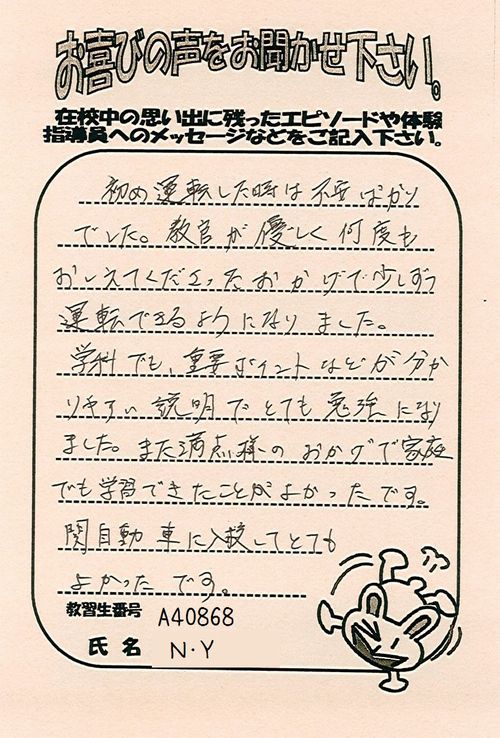 お喜びの声をお聞かせ下さい。
在校中の思い出に残ったエピソードや体験
指導員へのメッセージなどをご記入下さい。
初め運転した時は不安ばかり
でした。教官が優しく何度も
おしえてくださったおかげで少しずつ
運転できるようになりました。
学科でも、重要ポイントなどが分か
りやすい説明でとても勉強になり
ました。また満点様のおかげで家庭
でも学習できたことがよかったです。
関自動車に入校してとても
よかったです。
教習生番号 A40868
氏名 N・Y